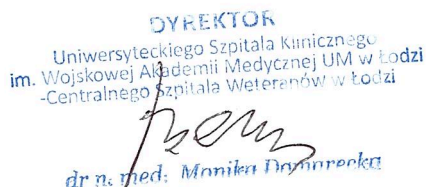 DYREKTOR
Uniwersyteckiego Szpitala Klinicznego
im. Wojskowej Akademii Medycznej UM w Łodzi
-Centralnego Szpitala Weteranów w Łodzi
dr n. med. Monika Domarecka